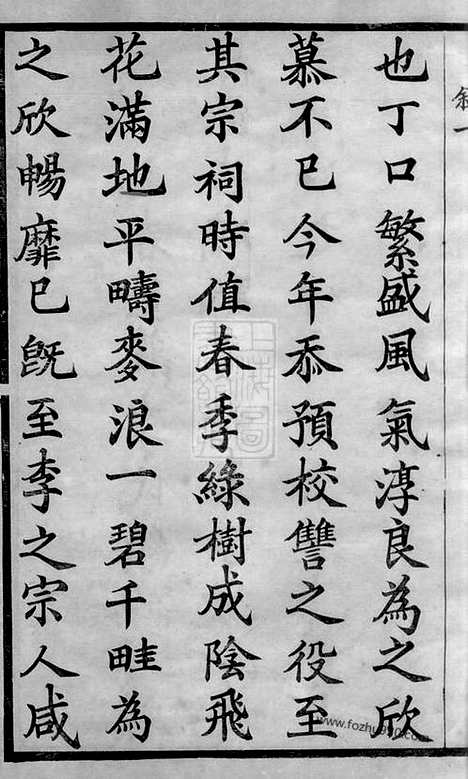 也丁口繁盛風氣淳良為之欣
慕不已今年忝預校讐之役至
其宗祠時值春季綠樹成陰飛
花滿地平疇麥浪一碧千畦為
之欣暢靡已既至李之宗人咸
www.fozhu990.com